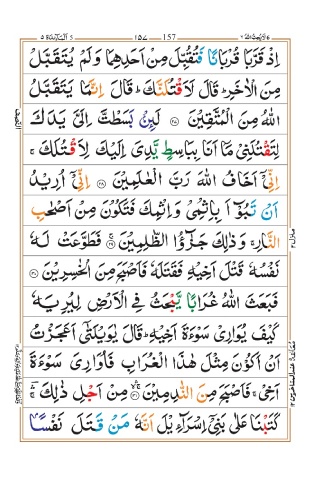 157 ١٥٧
اِذْ قَرَّبَا قُرْبَانًا فَتُقُبِّلَ مِنْ اَحَدِهِمَا وَلَمْ يُتَقَبَّلْ
مِنَ الْاٰخَرِ ؕ قَالَ لَاَقْتُلَنَّكَ ؕ قَالَ اِنَّمَا يَتَقَبَّلُ
اللّٰهُ مِنَ الْمُتَّقِيْنَ ۝۲۷ لَئِنْۢ بَسَطْتَّ اِلَيَّ يَدَكَ
لِتَقْتُلَنِيْ مَاۤ اَنَا بِبَاسِطٍ يَّدِيَ اِلَيْكَ لِاَقْتُلَكَ ۚ
اِنِّيْۤ اَخَافُ اللّٰهَ رَبَّ الْعٰلَمِيْنَ ۝۲۸ اِنِّيْۤ اُرِيْدُ
اَنْ تَبُوْٓاَ بِاِثْمِيْ وَاِثْمِكَ فَتَكُوْنَ مِنْ اَصْحٰبِ
النَّارِ ۚ وَذٰلِكَ جَزٰٓؤُا الظّٰلِمِيْنَ ۝۲۹ فَطَوَّعَتْ لَهٗ
نَفْسُهٗ قَتْلَ اَخِيْهِ فَقَتَلَهٗ فَاَصْبَحَ مِنَ الْخٰسِرِيْنَ ۝۳۰
فَبَعَثَ اللّٰهُ غُرَابًا يَّبْحَثُ فِي الْاَرْضِ لِيُرِيَهٗ
كَيْفَ يُوَارِيْ سَوْءَةَ اَخِيْهِ ؕ قَالَ يٰوَيْلَتٰۤى اَعَجَزْتُ
اَنْ اَكُوْنَ مِثْلَ هٰذَا الْغُرَابِ فَاُوَارِيَ سَوْءَةَ
اَخِيْ ۚ فَاَصْبَحَ مِنَ النّٰدِمِيْنَ ۝۳۱ مِنْ اَجْلِ ذٰلِكَ ۚ
كَتَبْنَا عَلٰى بَنِيْۤ اِسْرَآءِيْلَ اَنَّهٗ مَنْ قَتَلَ نَفْسًۢا